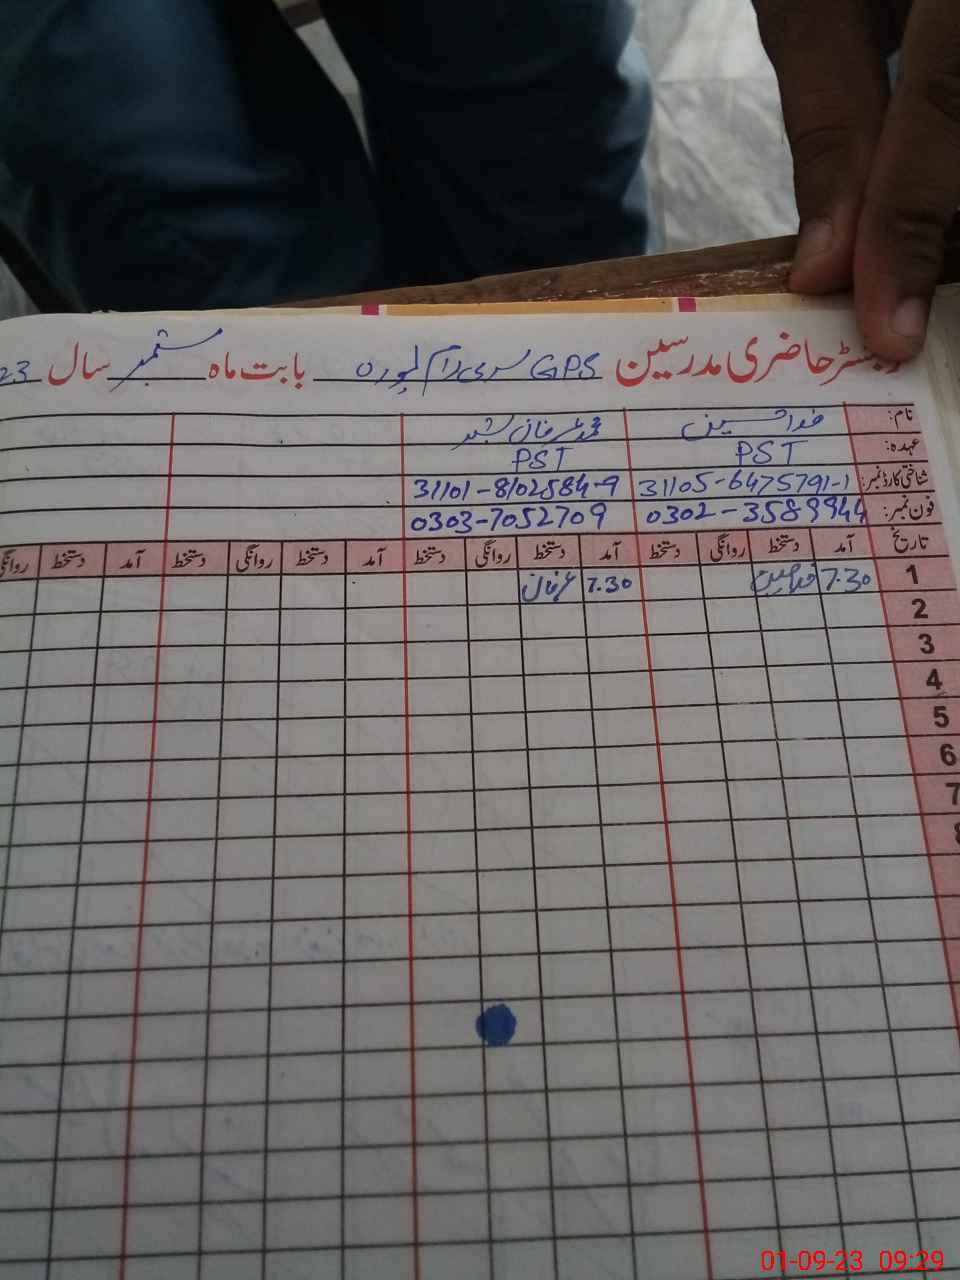 رجسٹر حاضری مدرسین GPS سری رام پورہ بابت ماہ ستمبر سال 23
نام: فدا حسین محمد عرفان
عہدہ: PST PST
شناختی کارڈ نمبر: 31105-6475791-1 31101-8102584-9
فون نمبر: 0302-3589944 0303-7052709
تاریخ آمد دستخط روانگی دستخط آمد دستخط روانگی دستخط آمد دستخط روانگی دستخط آمد دستخط روانگی
1 7.30 فدا حسین 7.30 عرفان
2
3
4
5
6
7
8
01-09-23 09:29